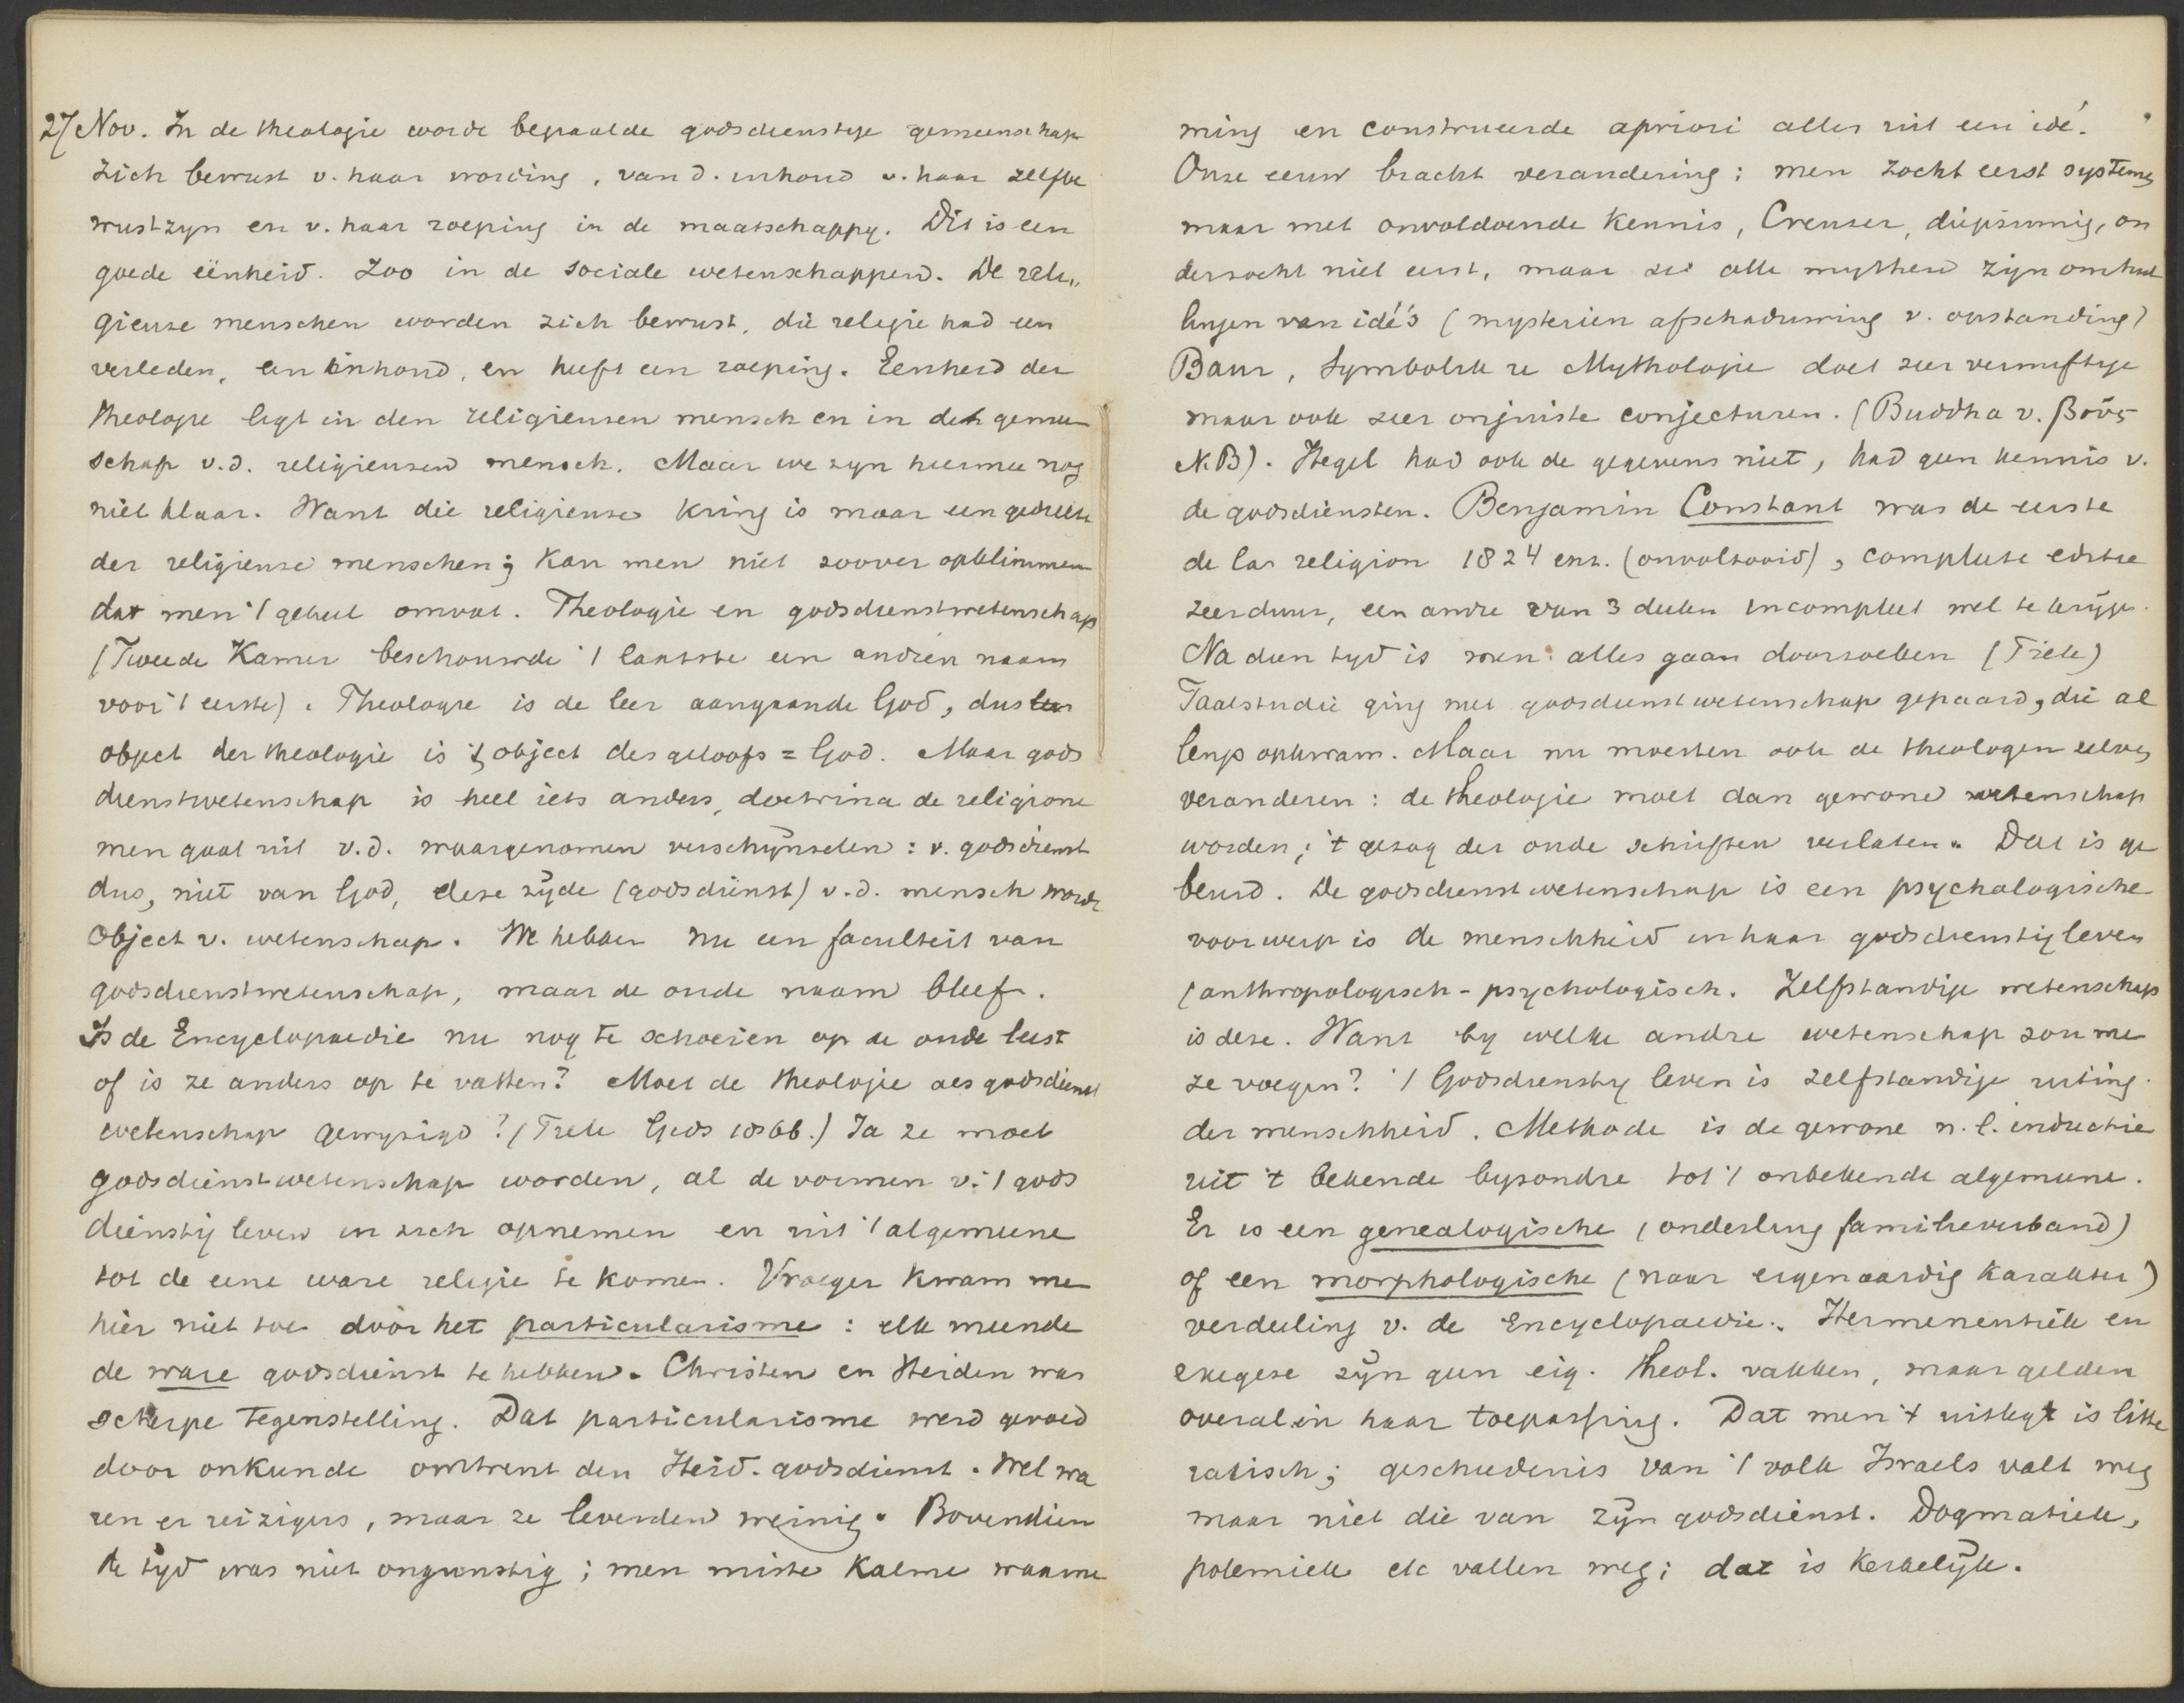 27 Nov. In de theologie wordt bepaalde godsdienstige gemeenschap
zich bewust v. haar wording, van d. inhoud v. haar zelfbe
wustzyn en v. haar roeping in de maatschappy. Dit is een
goede eenheid. Zoo in de sociale wetenschappen. De reli„
gieuze menschen worden zich bewust, die religie had een
verleden, een inhoud, en heeft een roeping. Eenheid der
theologie ligt in den religieusen mensch en in de gemeen
schap v.d. religieusen mensch. Maar we zyn hiermee nog
niet klaar. Want die religieuse kring is maar een gedeelte
der religieuse menschen; kan men niet zoover opklimmen
dat men 't geheel omvat. Theologie en godsdienstwetenschap
(Tweede Kamer beschouwde 't laatste een andren naam
voor 't eerste). Theologie is de leer aangaande God, dus
object der theologie is 't object des geloofs = God. Maar gods
dienstwetenschap is heel iets anders, doctrina de religione
men gaat uit v.d. waargenomen verschijnselen: v. godsdienst
dus, niet van God, deze zijde (godsdienst) v.d. mensch wordt
object v. wetenschap. We hebben nu een faculteit van
godsdienstwetenschap, maar de oude naam bleef.
Is de Encyclopaedie nu nog te schoeien op de oude leest
of is ze anders op te vatten? Moet de theologie als godsdienst
wetenschap gewyzigd? (Tiele Gids 1866.) Ja ze moet
godsdienstwetenschap worden, al de vormen v. 't gods
dienstig leven in zich opnemen en uit 't algemeene
tot de eene ware religie te komen. Vroeger kwam men
hier niet toe door het particularisme: elk meende
de ware godsdienst te hebben. Christen en Heiden was
scherpe tegenstelling. Dat particularisme werd gevoed
door onkunde omtrent den Heid. godsdienst. Wel wa
ren er reizigers, maar ze leverden weinig. Bovendien
de tyd was niet ongunstig; men miste kalme waarne
ming en construeerde apriori alles uit een idé.
Onze eeuw bracht verandering: men zocht eerst systemen
maar met onvoldoende kennis, Creuzer, diepzinnig, on
derzocht niet eerst, maar zei alle mythen zijn omhul
lingen van idé's (mysterien afschaduwing v. opstanding)
Baur, Symbolik u Mythologie doet zeer vernuftige
maar ook zeer onjuiste conjecturen. (Buddha v. βοῦς
N.B). Hegel had ook de gegevens niet, had geen kennis v.
de godsdiensten. Benjamin Constant was de eerste
de la religion 1824 enz. (onvoltooid), complete editie
zeer duur, een andre van 3 deelen incompleet wel te krijgen.
Na dien tyd is men alles gaan doorzoeken (Tiele)
Taalstudie ging met godsdienstwetenschap gepaard, die al
lengs opkwam. Maar nu moesten ook de theologen zelve
veranderen: de theologie moet dan gewone wetenschap
worden; 't gezag der oude schriften verlaten. Dat is ge
beurd. De godsdienstwetenschap is een psychologische
voorwerp is de menschheid in haar godsdienstig leven
(anthropologisch-psychologisch. Zelfstandige wetenschap
is deze. Want by welke andre wetenschap zou men
ze voegen? 't Godsdienstig leven is zelfstandige uiting
der menschheid. Methode is de gewone n.l. inductie
uit 't bekende byzondre tot 't onbekende algemeene.
Er is een genealogische (onderling familieverband)
of een morphologische (naar eigenaardig karakter)
verdeeling v. de Encyclopaedie. Hermeneutiek en
exegese zijn geen eig. theol. vakken, maar gelden
overal in haar toepassing. Dat men 't uitlegt is litte
rarisch; geschiedenis van 't volk Israels valt weg
maar niet die van zijn godsdienst. Dogmatiek,
polemiek etc vallen weg; dat is kerkelijk.